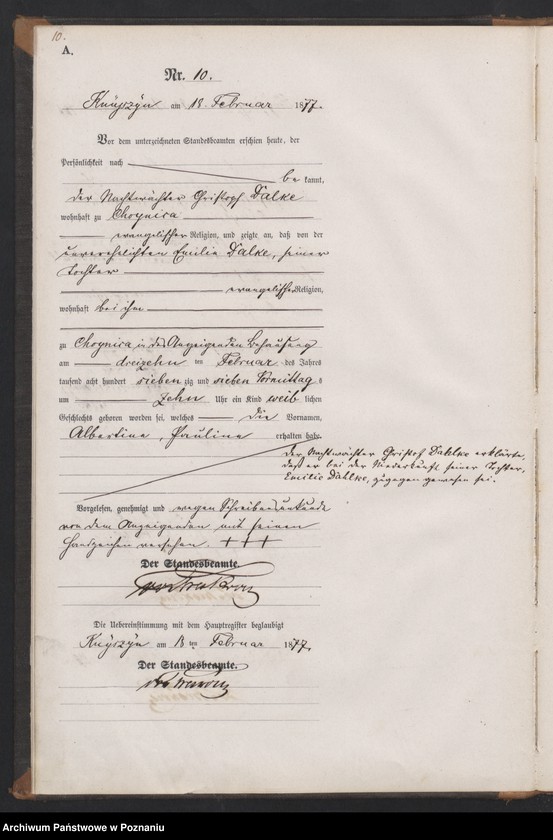 10.
A.
Nr. 10.
Knyszyn am 18. Februar 1877.
Vor dem unterzeichneten Standesbeamten erschien heute, der
Persönlichkeit nach
be kannt,
der Nachtwächter Christoph Dalke
wohnhaft zu Choynica
evangelischer Religion, und zeigte an, daß von der
unverehelichten Emilie Dalke, seiner
Tochter
evangelischer Religion,
wohnhaft bei ihm
zu Choynica in des Anzeigenden Behausung
am dreizehn ten Februar des Jahres
tausend acht hundert sieben zig und sieben Vormittags
um zehn Uhr ein Kind weib lichen
Geschlechts geboren worden sei, welches die Vornamen,
Albertine, Pauline erhalten habe.
Der Nachtwächter Christof Dahlke erklärte,
daß er bei der Niederkunft seiner Tochter,
Emilie Dahlke, zugegen gewesen sei.
Vorgelesen, genehmigt und wegen Schreibensunkunde
von dem Anzeigenden mit seinem
Handzeichen versehen. +++
Der Standesbeamte.
Die Uebereinstimmung mit dem Hauptregister beglaubigt
Knyszyn am 18 ten Februar 1877.
Der Standesbeamte.
Archiwum Państwowe w Poznaniu